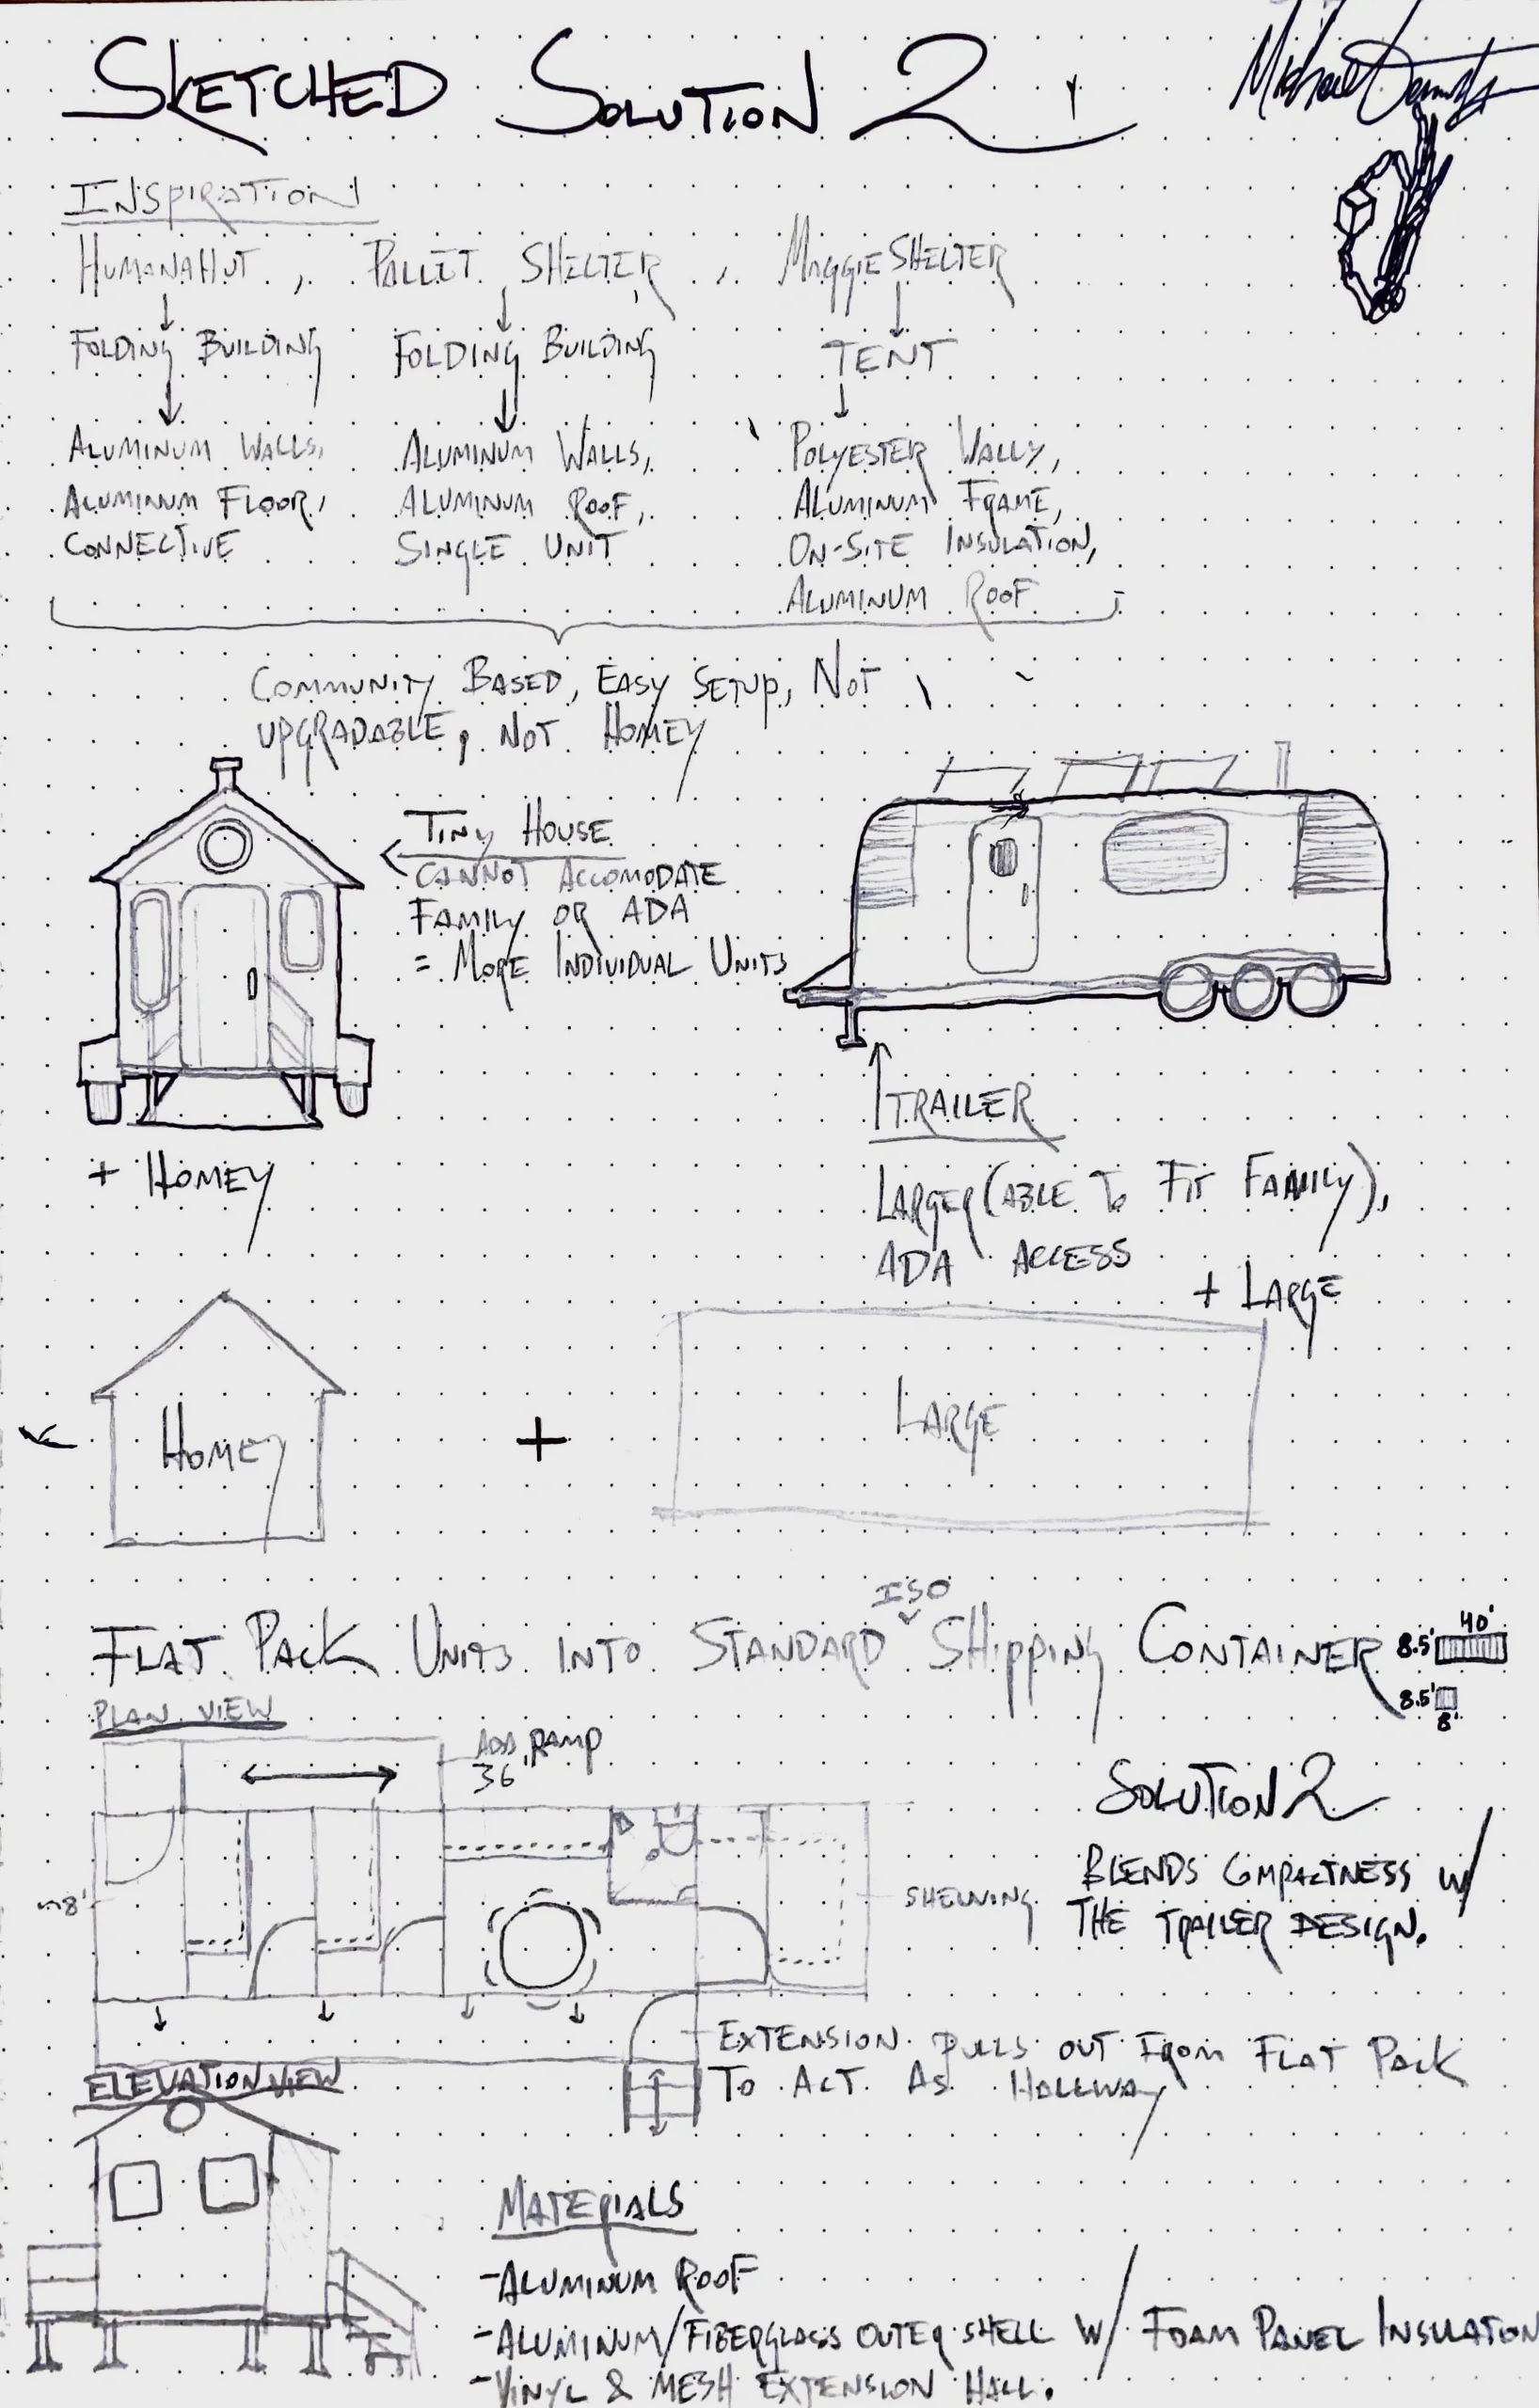 SKETCHED SOLUTION 2
INSPIRATION
HUMANAHUT, PALLET SHELTER, MAGGIE SHELTER
FOLDING BUILDING
FOLDING BUILDING
TENT
ALUMINUM WALLS,
ALUMINUM FLOOR,
CONNECTIVE
ALUMINUM WALLS,
ALUMINUM ROOF,
SINGLE UNIT
POLYESTER WALLS,
ALUMINUM FRAME,
ON-SITE INSULATION,
ALUMINUM ROOF
COMMUNITY BASED, EASY SETUP, NOT
UPGRADABLE, NOT HOMEY
TINY HOUSE
CANNOT ACCOMODATE
FAMILY OR ADA
= MORE INDIVIDUAL UNITS
+ HOMEY
TRAILER
LARGER (ABLE TO FIT FAMILY),
ADA ACCESS
+ LARGE
HOMEY
+
LARGE
ISO
FLAT PACK UNITS INTO STANDARD SHIPPING CONTAINER
40'
8.5'
8.5'
8'
PLAN VIEW
ADA RAMP
36
8'
SHELVING
SOLUTION 2
BLENDS COMPACTNESS W/
THE TRAILER DESIGN.
EXTENSION PULLS OUT FROM FLAT PACK
TO ACT AS HALLWAY
ELEVATION VIEW
MATERIALS
-ALUMINUM ROOF
-ALUMINUM/FIBERGLASS OUTER SHELL W/ FOAM PANEL INSULATION
-VINYL & MESH EXTENSION HALL.